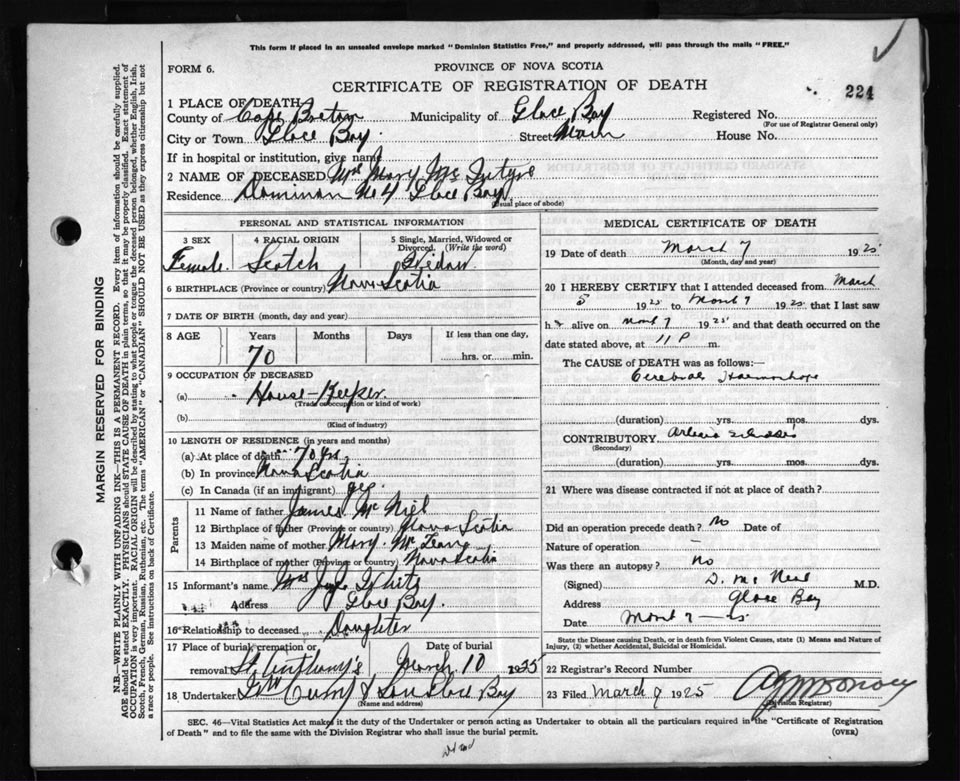 This form if placed in an unsealed envelope marked "Dominion Statistics Free," and properly addressed, will pass through the mails "FREE."
FORM 6.
PROVINCE OF NOVA SCOTIA
CERTIFICATE OF REGISTRATION OF DEATH
224
1 PLACE OF DEATH
County of Cape Breton Municipality of Glace Bay Registered No.
(For use of Registrar General only)
City or Town Glace Bay Street Main House No.
If in hospital or institution, give name
2 NAME OF DECEASED Mrs Mary Mc Intyre
Residence Dominion No 4 Glace Bay
(Usual place of abode)
PERSONAL AND STATISTICAL INFORMATION
3 SEX 4 RACIAL ORIGIN 5 Single, Married, Widowed or Divorced. (Write the word)
Female. Scotch Widow
6 BIRTHPLACE (Province or country) Nova Scotia
7 DATE OF BIRTH (month, day and year)
8 AGE Years Months Days If less than one day,
70 hrs. or min.
9 OCCUPATION OF DECEASED
(a) House-Keeper
(Trade or occupation or kind of work)
(b)
(Kind of industry)
10 LENGTH OF RESIDENCE (in years and months)
(a) At place of death 70 yrs
(b) In province Nova Scotia
(c) In Canada (if an immigrant)
Parents
11 Name of father James Mc Niel
12 Birthplace of father (Province or country) Nova Scotia
13 Maiden name of mother Mary Mc
14 Birthplace of mother (Province or country) Nova Scotia
15 Informant's name Mrs White
Address Glace Bay.
16 Relationship to deceased Daughter
17 Place of burial, cremation or removal Date of burial
St Anthony's March 10 1925
18 Undertaker Curry & Son Glace Bay
(Name and address)
MEDICAL CERTIFICATE OF DEATH
19 Date of death March 7 1925
(Month, day and year)
20 I HEREBY CERTIFY that I attended deceased from March
5 1925 to 7 1925 that I last saw
h alive on 7 1925 and that death occurred on
date stated above, at 11 P m.
The CAUSE OF DEATH was as follows:—
Cerebral Haemorrhage
(duration) yrs. mos. dys.
CONTRIBUTORY Arterio sclerosis
(Secondary)
(duration) yrs. mos. dys.
21 Where was disease contracted if not at place of death?
Did an operation precede death? No Date of
Nature of operation —
Was there an autopsy? No
(Signed) D. Mc Neil M.D.
Address Glace Bay
Date 9—25
State the Disease causing Death, or in death from Violent Causes, state (1) Means and Nature of
Injury, (2) whether Accidental, Suicidal or Homicidal.
22 Registrar's Record Number
23 Filed March 9 1925
(Division Registrar)
SEC. 46—Vital Statistics Act makes it the duty of the Undertaker or person acting as Undertaker to obtain all the particulars required in the "Certificate of Registration
of Death" and to file the same with the Division Registrar who shall issue the burial permit.
(OVER)
MARGIN RESERVED FOR BINDING
N.B.—WRITE PLAINLY WITH UNFADING INK—THIS IS A PERMANENT RECORD. Every item of information should be carefully supplied.
AGE should be stated EXACTLY. PHYSICIANS should STATE CAUSE OF DEATH in plain terms, so that it may be properly classified. Exact statement of
OCCUPATION is very important. RACIAL ORIGIN will be described by stating to what people or tongue the deceased person belonged, whether English, Irish,
Scotch, French, German, Russian, Ruthenian, etc. The terms "AMERICAN" or "CANADIAN" SHOULD NOT BE USED as they express citizenship but not
a race or people. See instructions on back of Certificate.